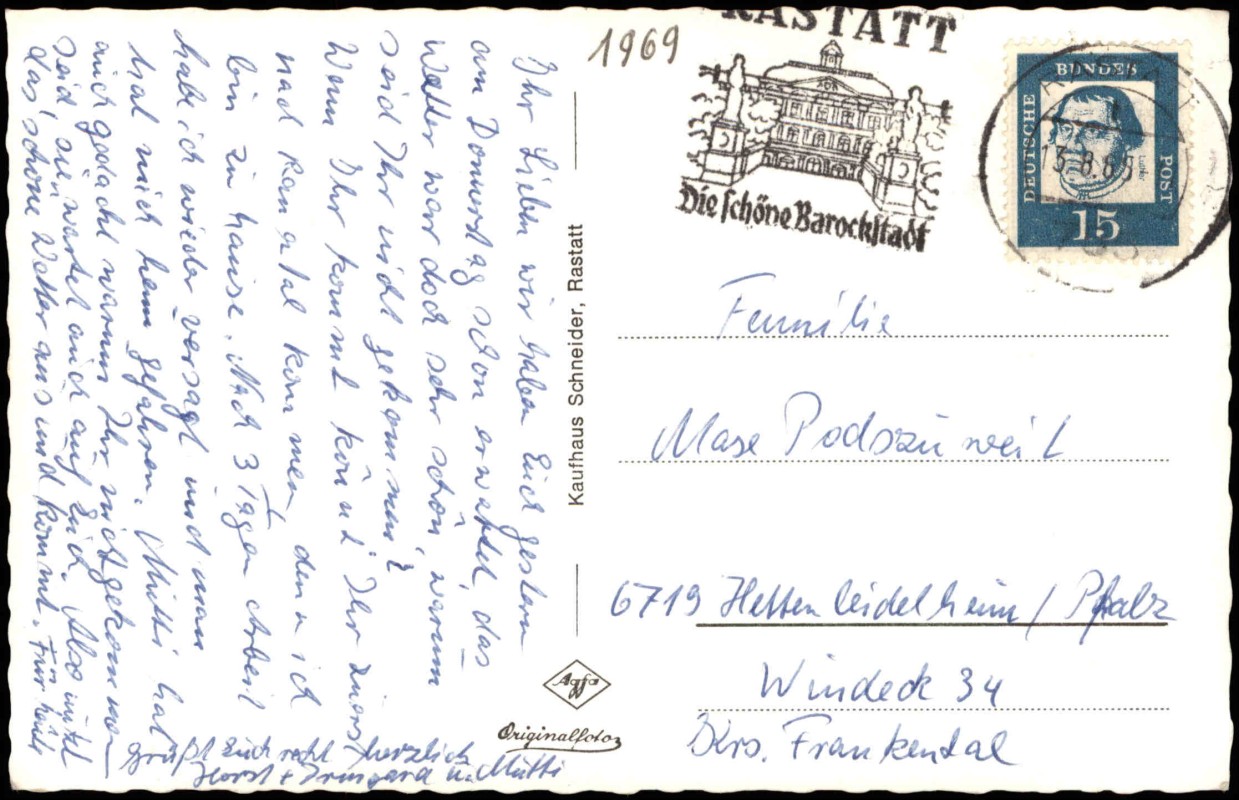 1969
RASTATT
Die schöne Barockstadt
DEUTSCHE
BUNDES
POST
Luther
15
13.8.65
Ihr Lieben wir haben Euch gestern
am Donnerstag schon erwartet, das
Wetter war doch sehr schön, warum
seid Ihr nicht gekommen?
Wenn Ihr kommt könnt Ihr zuerst
nach kommen, denn ich
bin zu hause. Nach 3 Tagen arbeit
habe ich wieder versagt und man
hat mich heim gefahren. Mutti hat
auch gedacht warum Ihr nicht gekommen
seid, sie wartet auch auf Euch. Also nützt
das schöne Wetter aus und kommt. Für heute
grüßt Euch recht herzlich
Horst + Irmgard u. Mutti
Kaufhaus Schneider, Rastatt
Agfa
Originalfoto
Familie
Podszuweit
6719 Hettenleidelheim / Pfalz
Windeck 34
Krs. Frankental